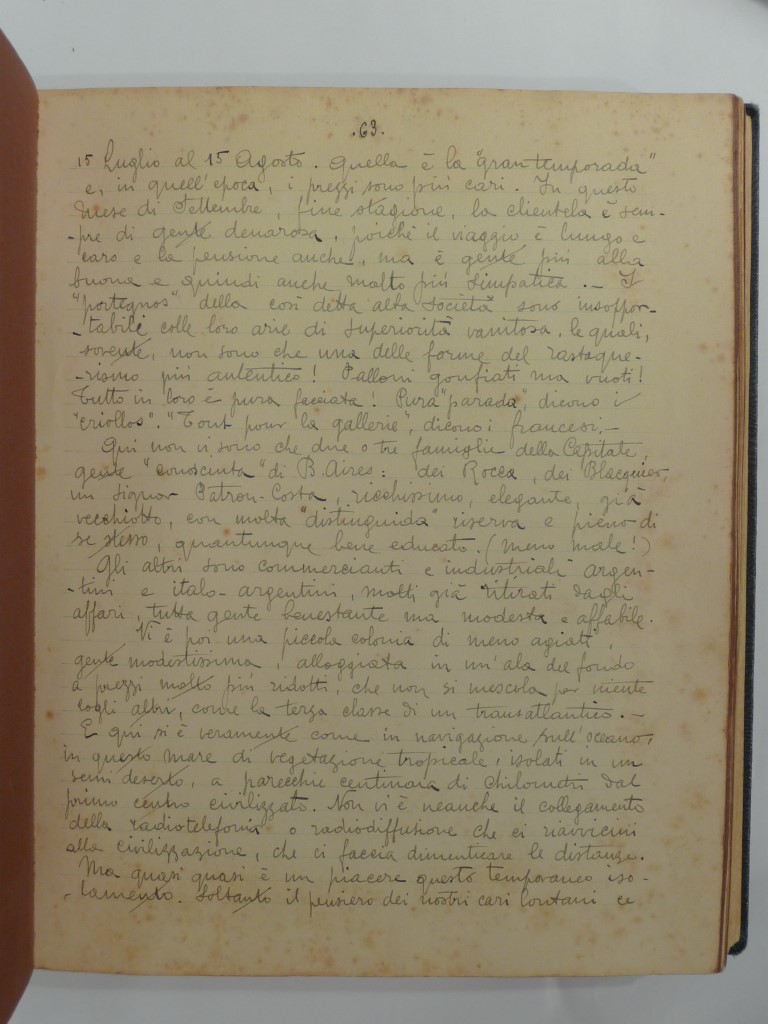 .63.
15 Luglio al 15 Agosto. Quella è la "gran temporada"
e, in quell'epoca, i prezzi sono più cari. In questo
mese di Settembre, fine stagione, la clientela è sem-
-pre di gente denarosa, perchè il viaggio è lungo e
caro e la pensione anche, ma è gente più alla
buona e quindi anche molto più simpatica. - I
"portegnos" della così detta alta società sono insoppor-
-tabili colle loro arie di superiorità vanitosa, le quali,
sovente, non sono che una delle forme del rastaque-
-rismo più autentico! Palloni gonfiati ma vuoti!
Tutto in loro è pura facciata! Pura "parada", dicono i
"criollos". "Tout pour la gallerie", dicono i francesi. -
Qui non vi sono che due o tre famiglie della Capitale,
gente "conoscenta" di B. Aires: dei Rocca, dei Blacquier,
un signor Patron-Costa, ricchissimo, elegante, già
vecchiotto, con molta "distinguida" riserva e pieno di
se stesso, quantunque bene educato. (meno male!)
Gli altri sono commercianti e industriali argen-
-tini e italo-argentini, molti già ritirati dagli
affari, tutta gente benestante ma modesta e affabile.
Vi è poi una piccola colonia di meno agiati,
gente modestissima, alloggiata in un'ala del fondo
a prezzi molto più ridotti, che non si mescola per niente
cogli altri, come la terza classe di un transatlantico. -
E qui si è veramente come in navigazione sull'oceano,
in questo mare di vegetazione tropicale, isolati in un
semi deserto, a parecchie centinaia di chilometri dal
primo centro civilizzato. Non vi è neanche il collegamento
della radiotelefonia o radiodiffusione che ci riavvicini
alla civilizzazione, che ci faccia dimenticare le distanze.
Ma quasi quasi è un piacere questo temporaneo iso-
-lamento. Soltanto il pensiero dei nostri cari lontani ce